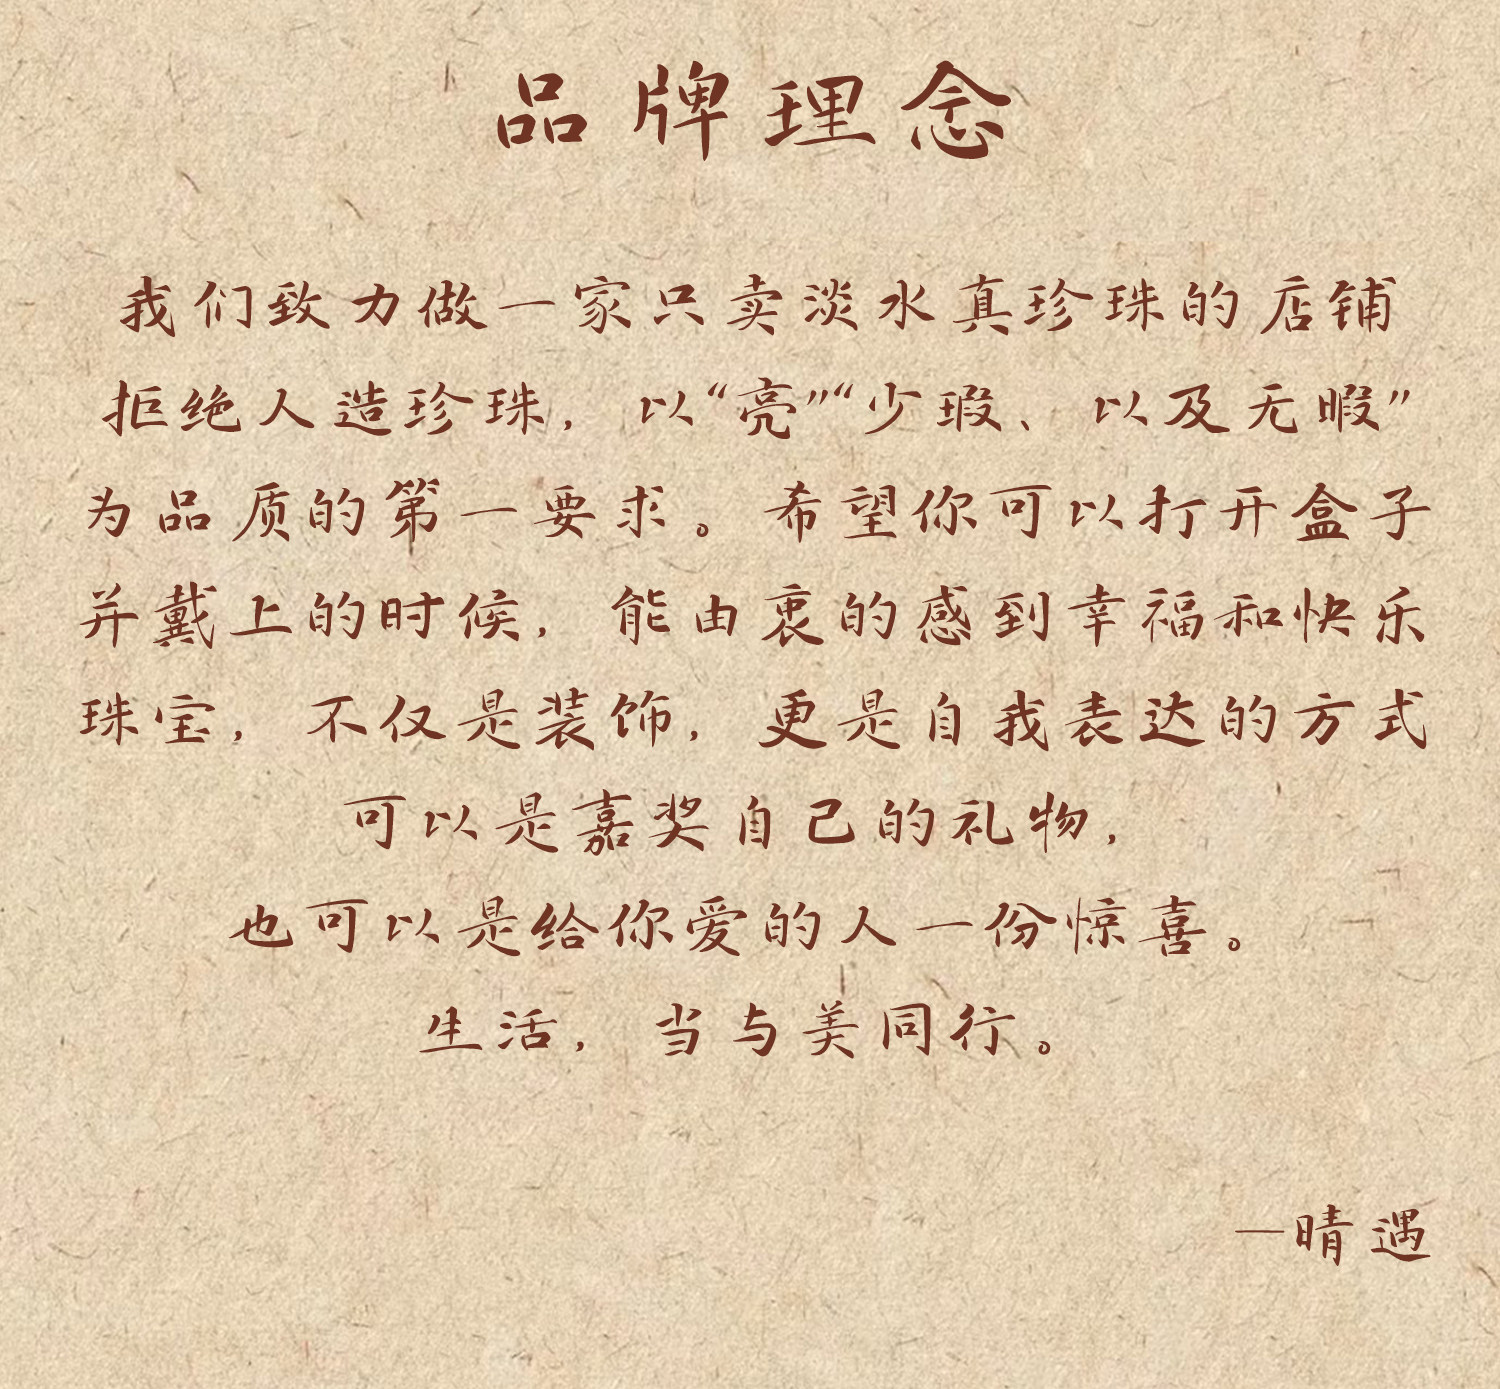 品牌理念
我们致力做一家只卖淡水真珍珠的店铺
拒绝人造珍珠，以“亮”“少瑕、以及无暇”
为品质的第一要求。希望你可以打开盒子
并戴上的时候，能由衷的感到幸福和快乐
珠宝，不仅是装饰，更是自我表达的方式
可以是嘉奖自己的礼物，
也可以是给你爱的人一份惊喜。
生活，当与美同行。
—晴遇